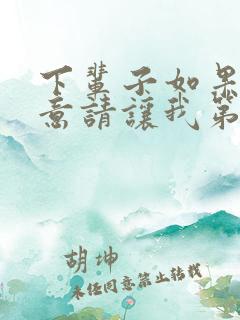 下輩子如果
意請讓我第
胡坤
未经同意禁止转载